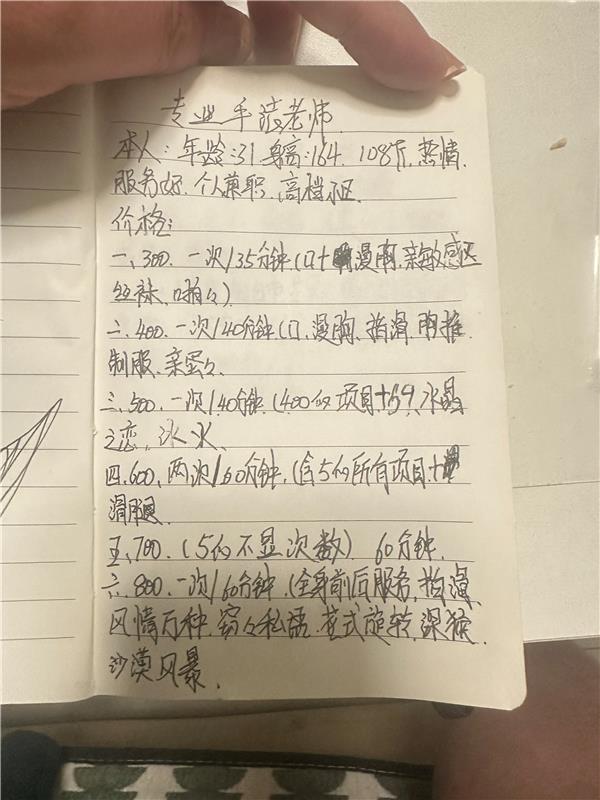 专业手法老师
本人:年龄:31 身高:164. 108斤,热情.
服务好.个人兼职,高档小区.
价格:
一、300.一次/35分钟(口+漫胸.亲敏感区
丝袜、啪々)
二.400.一次/40分钟(口、漫胸、指滑.胸推.
制服、亲蛋々.
三.500.一次/40分钟.(400的项目+69.水晶
之恋,冰火、
四.600、两次/60分钟.(含5的所有项目.+
滑腿.
五、700.(5的不显次数) 60分钟.
六.800.一次/60分钟(全身前后服务,指滑
风情万种,窃々私语.花式旋转,深猴.
沙漠风暴.